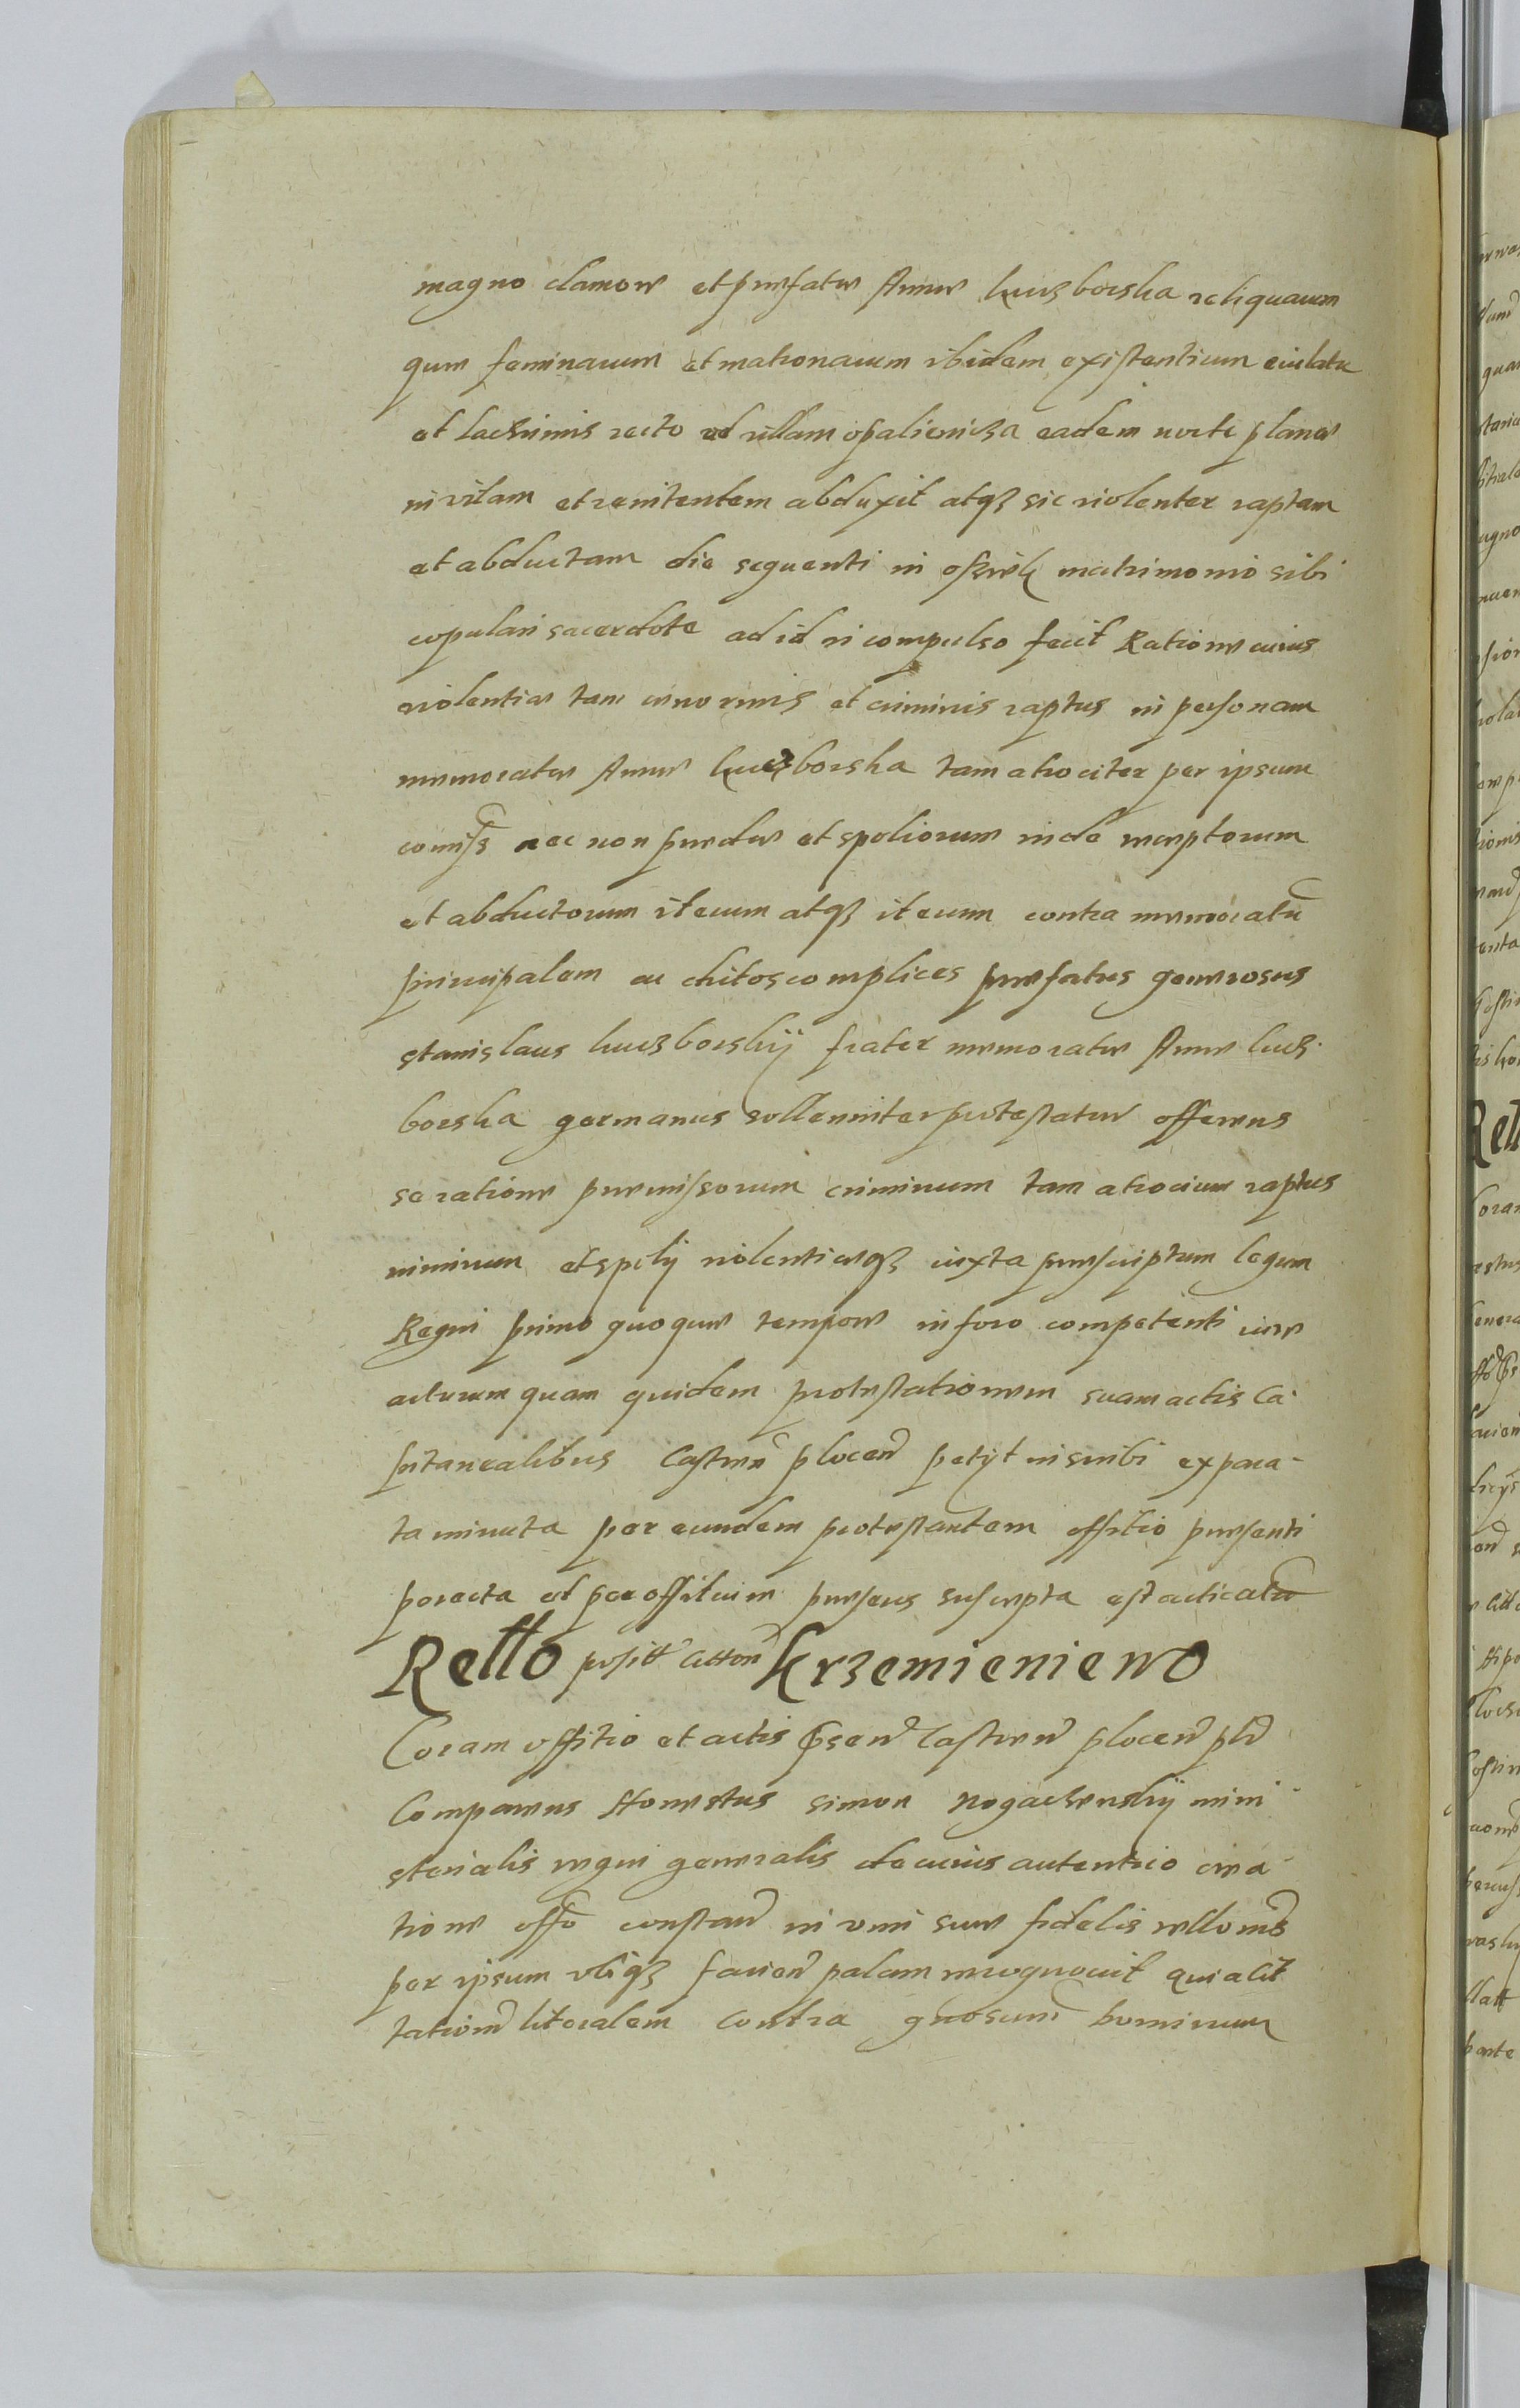 magno clamore et præfatæ Annæ Kuczborska reliquarum
que feminarum et matronarum ibidem existentium eiulatu
et lachrimis recto ad villam opalienicza eadem nocte plane
invitam et renitentem abduxit atqz sic violenter raptam
et abductam die sequenti in matrimonio sibi
copulari sacerdote ad id vi compulso fecit Ratione cuius
violentiæ tam enormis et criminis raptus in personam
memoratæ Annæ Kuczborska tam atrociter per ipsum
comiss nec non prædæ et spoliorum inde receptorum
et abductorum iterum atqz iterum contra memoratu
principalem ac dictos complices præfatus generosus
stanislaus kuczborskij frater memoratæ Annæ kucz
borska germanus sollenniter protestatur offerens
se ratione præmissorum criminum tam atrocium raptus
nimirum et spolij violentiæqz iuxta præscriptum legum
Regni primo quoque tempore in foro competenti iure
acturum quam quidem protestationem suam actis Ca
pitanealibus Castren plocen petijt inscribi ex para-
ta minuta per eundem protestantem offitio præsenti
porecta et per offitium præsens suscepta est acticata
Rello posit Citton Krzemieniewo
Coram offitio et actis psen Castren plocen plr
Comparens Honestus simon nogacxenskij mini
sterialis regni generalis de cuius autentico crea
tione offo constand in vim suæ fidelis rellonis
per ipsum vbiqz facien palam recognouit quia cit
tationem literalem contra gnosum hominum